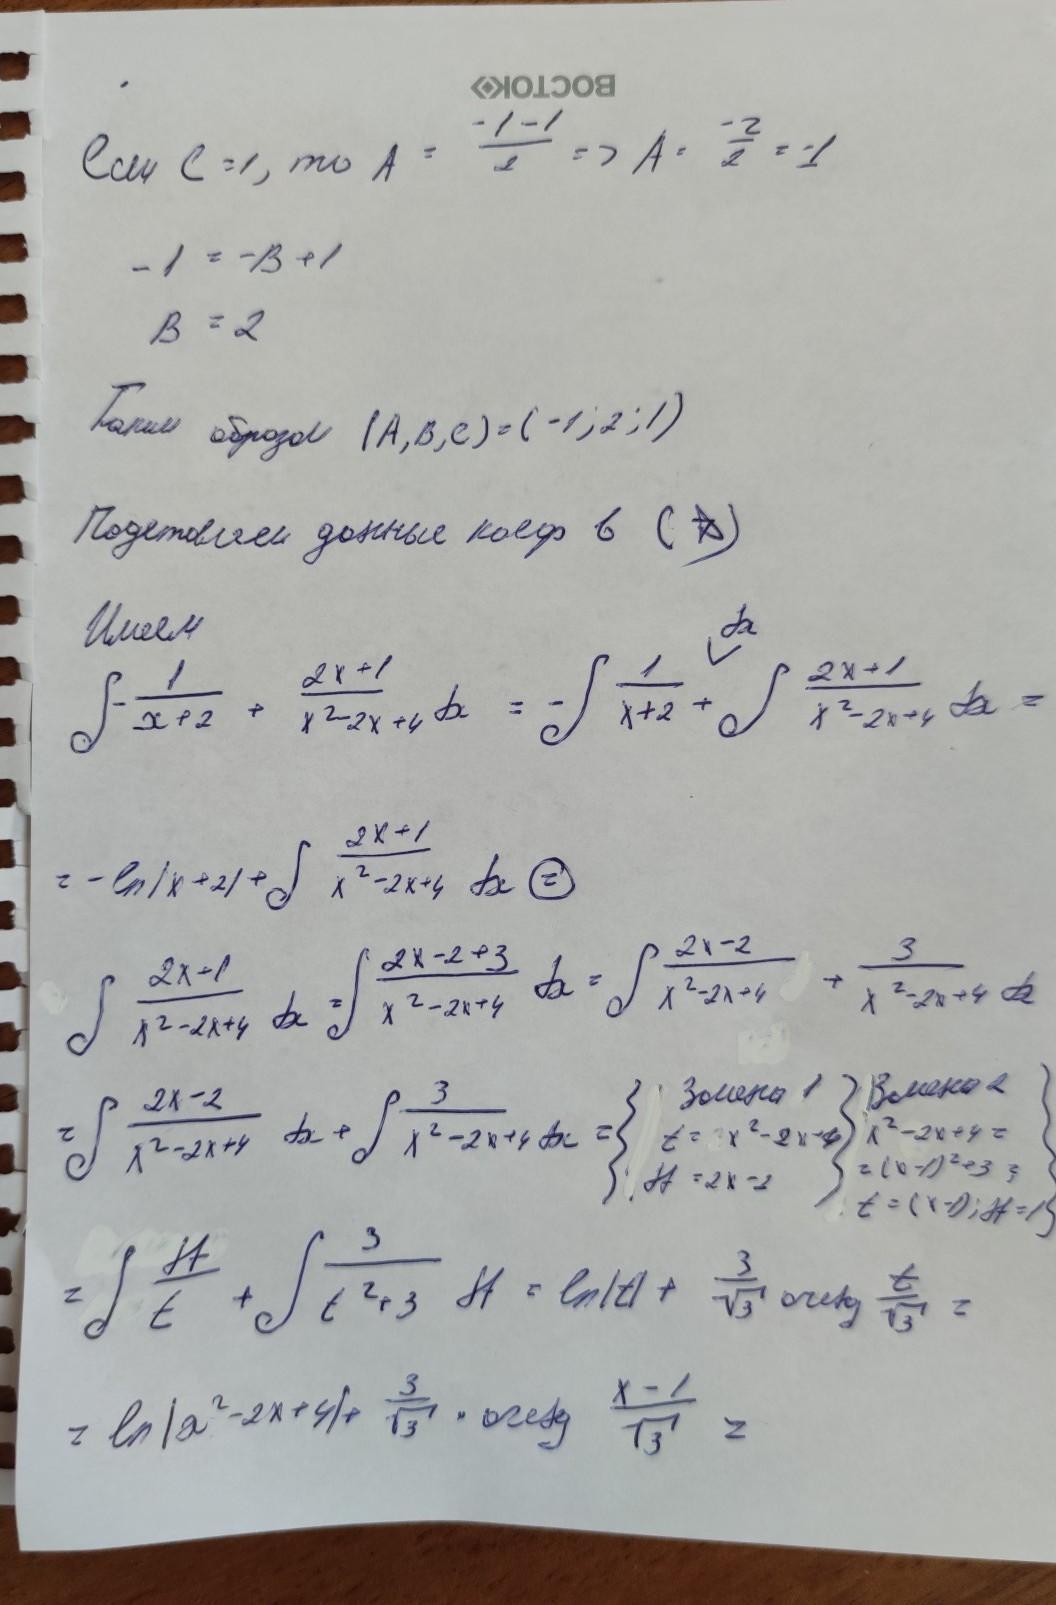 ВОСТОК
Если C = 1, то A = \frac{-1-1}{2} => A = \frac{-2}{2} = -1
-1 = -B + 1
B = 2
Таким образом (A, B, C) = (-1; 2; 1)
Подставляем данные коэф в (*)
Имеем
∫ - \frac{1}{x+2} + \frac{2x+1}{x^2-2x+4} dx = - ∫ \frac{1}{x+2} dx + ∫ \frac{2x+1}{x^2-2x+4} dx =
= - ln|x+2| + ∫ \frac{2x+1}{x^2-2x+4} dx =
∫ \frac{2x+1}{x^2-2x+4} dx = ∫ \frac{2x-2+3}{x^2-2x+4} dx = ∫ \frac{2x-2}{x^2-2x+4} + \frac{3}{x^2-2x+4} dx
= ∫ \frac{2x-2}{x^2-2x+4} dx + ∫ \frac{3}{x^2-2x+4} dx = { Замена 1
t = x^2-2x+4
dt = 2x-2 } Замена 2
x^2-2x+4 =
= (x-1)^2+3 =
t = (x-1); dt = 1 }
= ∫ \frac{dt}{t} + ∫ \frac{3}{t^2+3} dt = ln|t| + \frac{3}{\sqrt{3}} arctg \frac{t}{\sqrt{3}} =
= ln|x^2-2x+4| + \frac{3}{\sqrt{3}} · arctg \frac{x-1}{\sqrt{3}} =